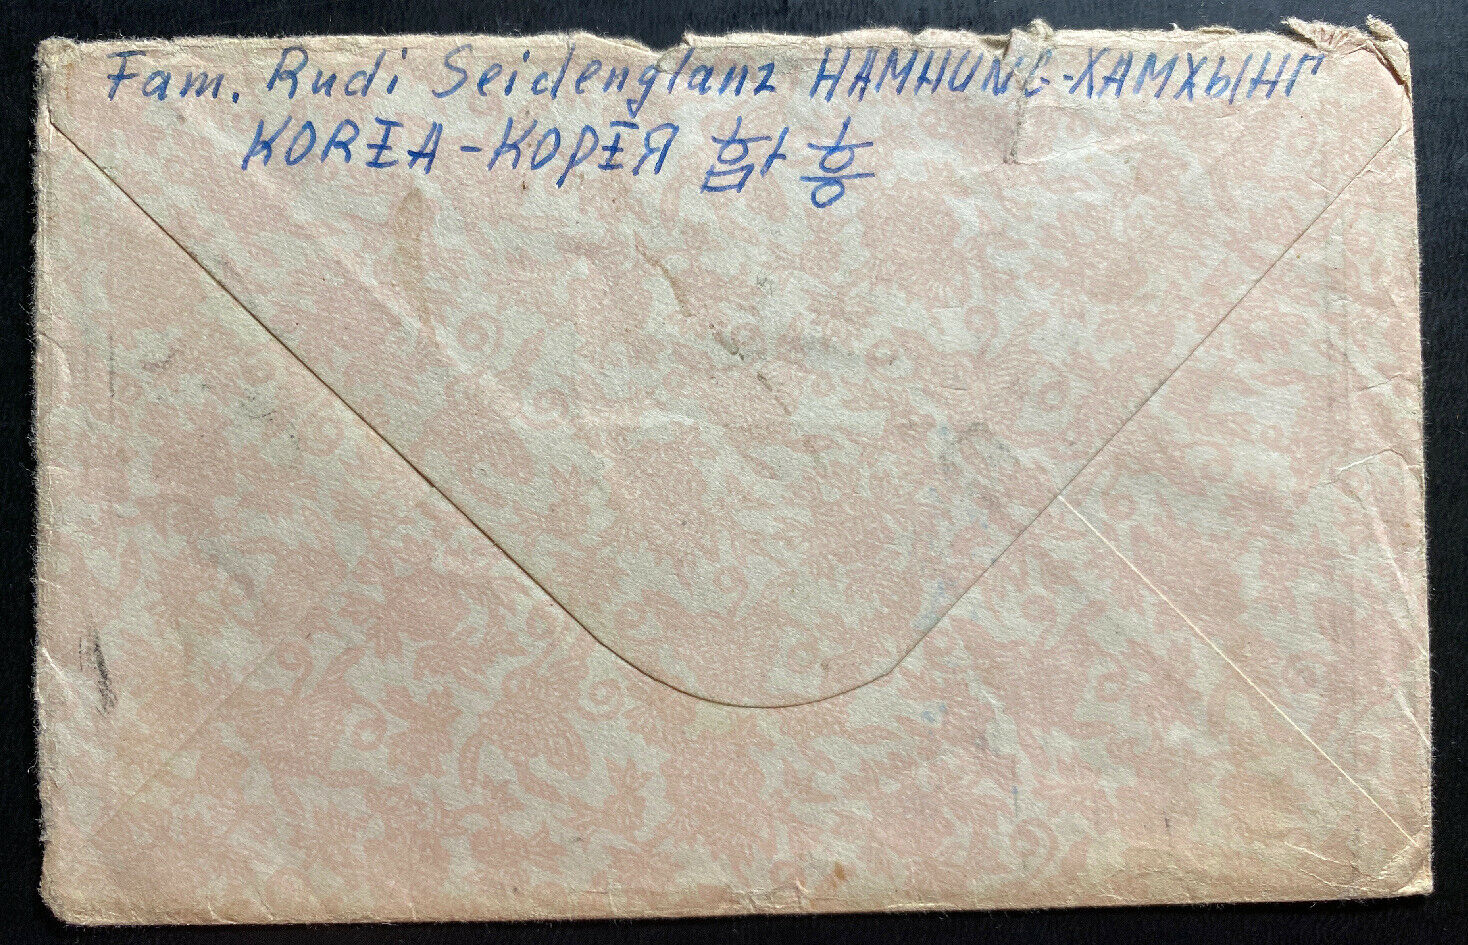 Fam. Rudi Seidenglanz HAMHUNG-ХАМХЫНГ
KOREA-КОРЕЯ 함흥